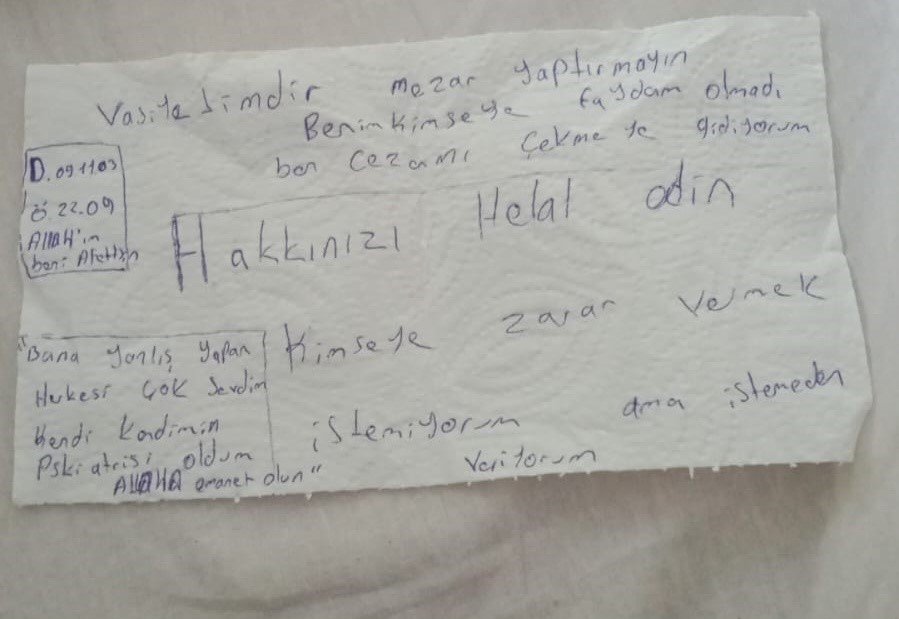 Vasiyetimdir mezar yaptırmayın
Benim kimseye faydam olmadı
ben cezamı çekmeye gidiyorum
D. 09.11.03
Ö 22.09
Allah'ım
beni Afettin
Hakkınızı Helal edin
"Bana yanlış yapan
Herkesi çok sevdim
Kendi Kendimin
Pskiatrisi oldum
ALLAHA emanet olun"
Kimseye zarar vermek
istemiyorum ama istemeden
veriyorum